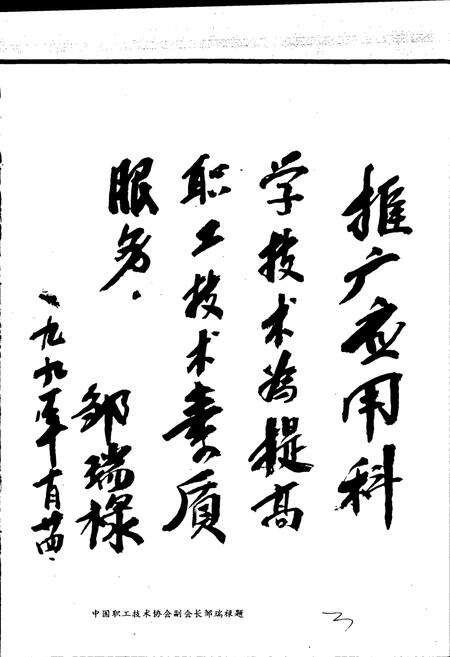 推广应用科
学技术为提高
职工技术素质
服务.
邹瑞禄
一九九
年十
中国职工技术协会副会长邹瑞禄题
3